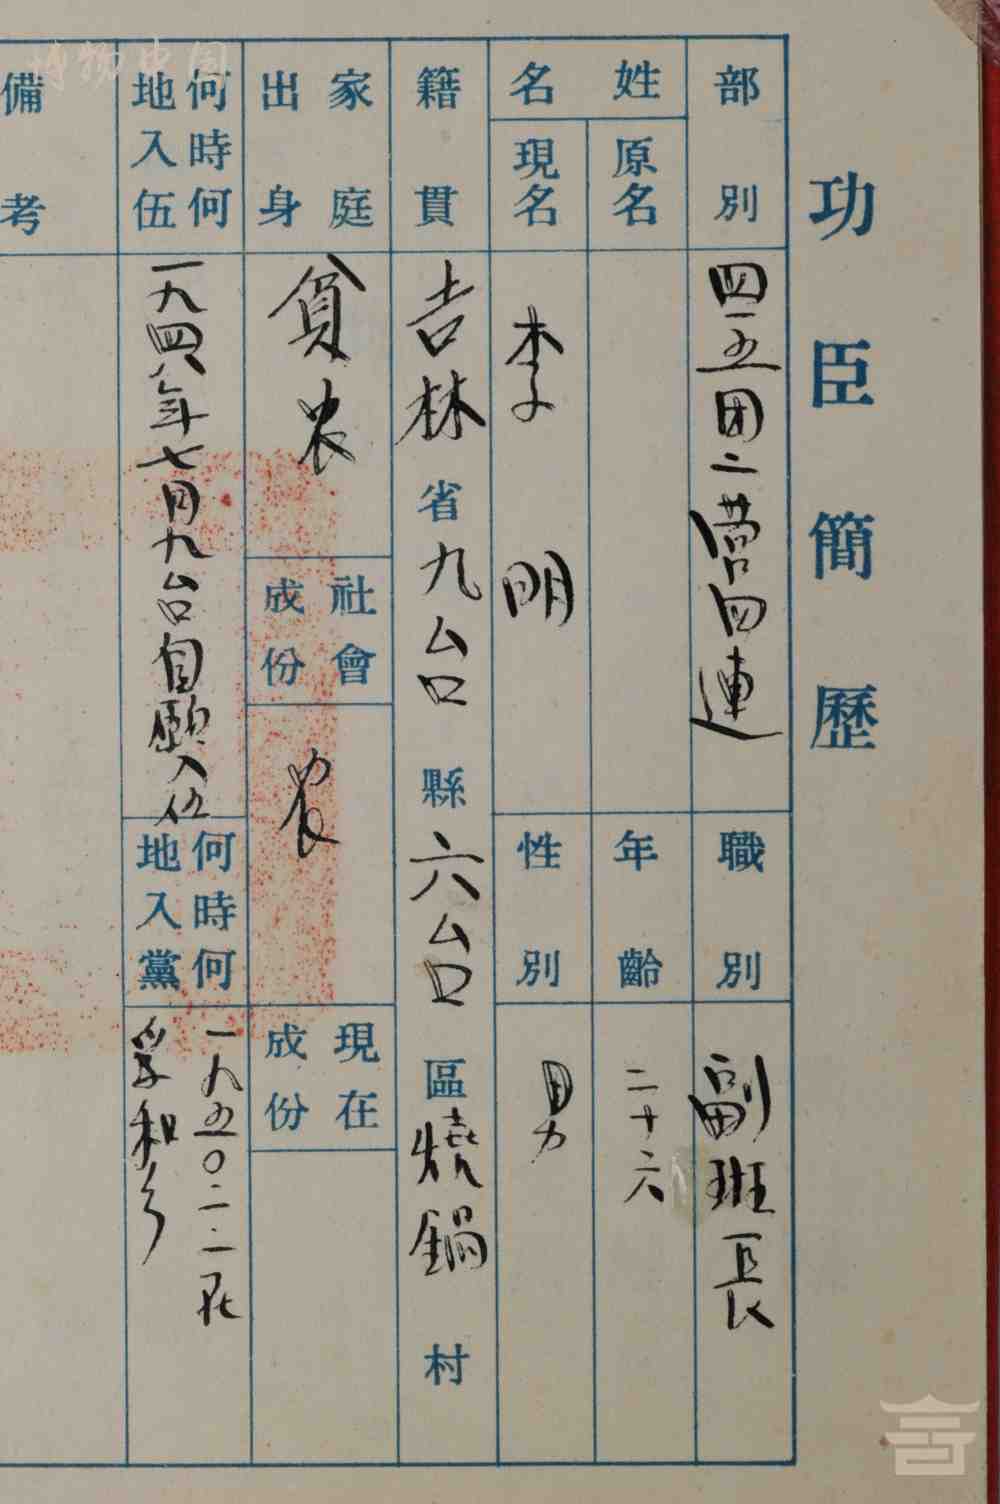 功臣簡歷
部別
四一五团二营四連
職別
副班長
姓名
原名
年齡
二十六
現名
李明
性別
男
籍貫
吉林省九台縣六台區燒鍋村
家庭出身
貧农
社會成份
农
現在成份
何時何地入伍
一九四八年七月九台自願入伍
何時何地入黨
一九五〇.二.二
備考
博物中国